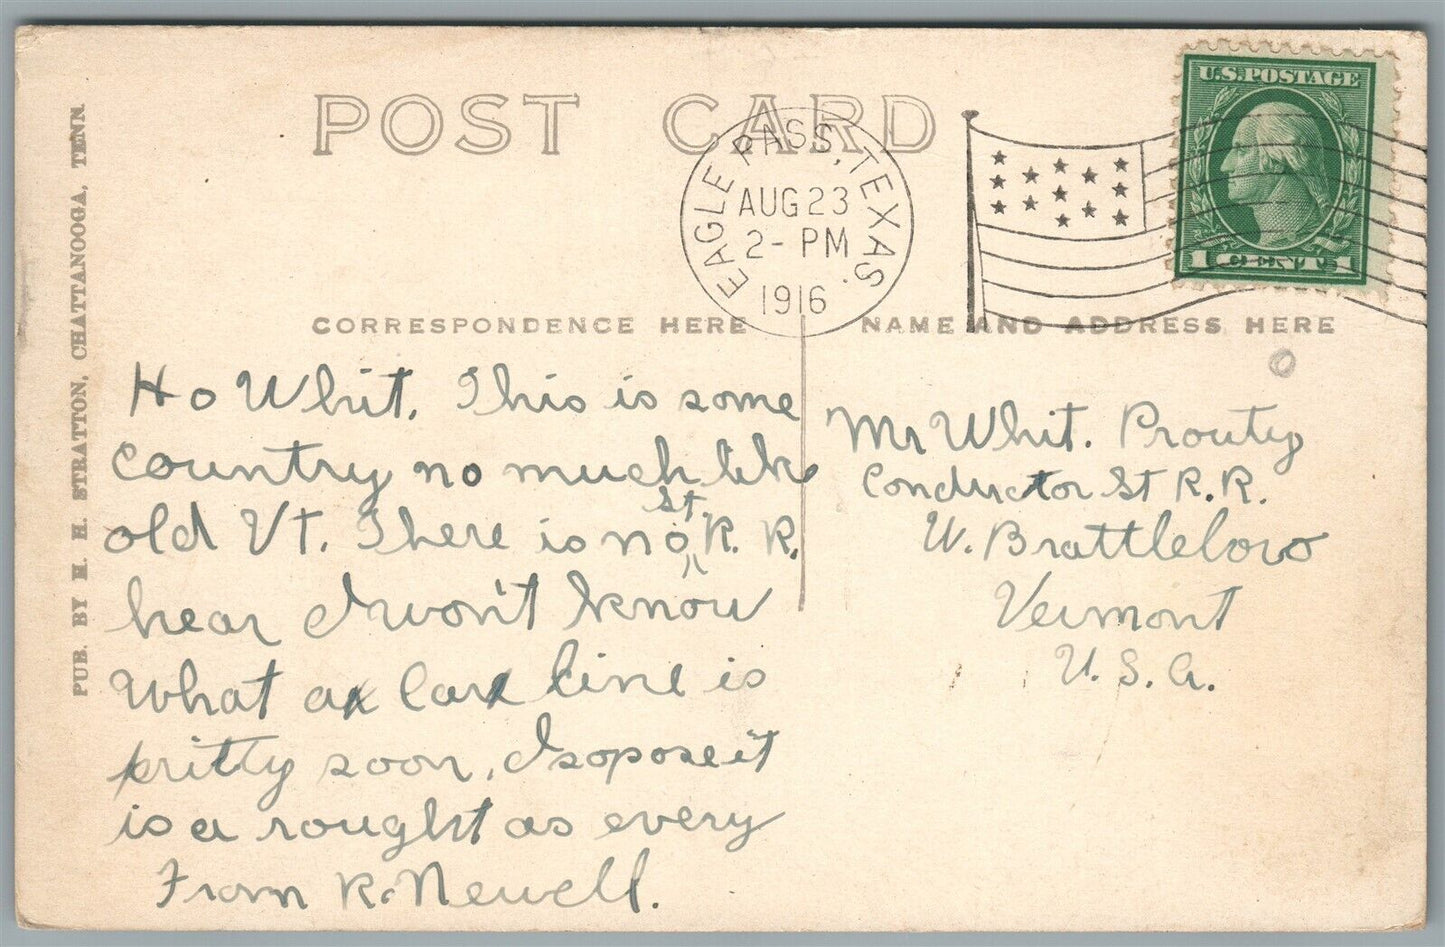 POST CARD
U.S. POSTAGE
1 CENT 1
EAGLE PASS, TEXAS.
AUG 23
2- PM
1916
CORRESPONDENCE HERE
NAME AND ADDRESS HERE
PUB. BY H. H. STRATTON, CHATTANOOGA, TENN.
Ho Whit. This is some
Country no much like
old Vt. There is no St. R. R.
hear I won't know
What a Car line is
pritty soon, I sopose it
is a rought as every
From R. Newell.
Mr Whit. Prouty
Conductor St R.R.
W. Brattleboro
Vermont
U. S. A.